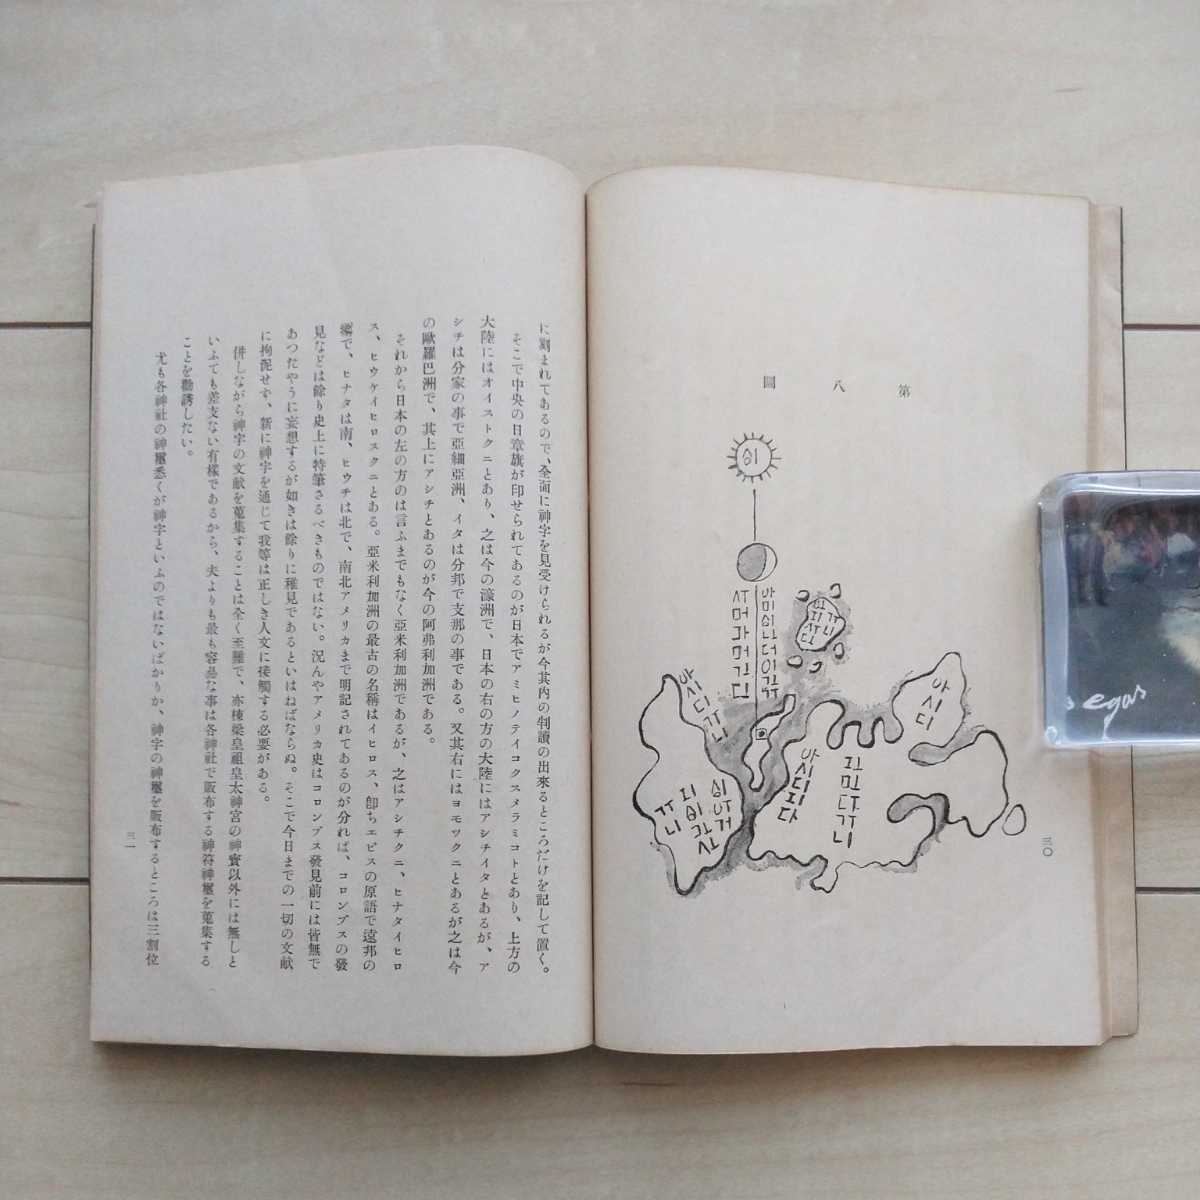 第八圖
아시디
三〇
に刻まれてあるので、全面に神字を見受けられるが今其内の判讀の出來るところだけを記して置く。
そこで中央の日章旗が印せられてあるのが日本でアミヒノテイコクスメラミコトとあり、上方の
大陸にはオイストクニとあり、之は今の濠洲で、日本の右の方の大陸にはアシチイタとあるが、ア
シチは分家の事で亞細亞洲、イタは分邦で支那の事である。又其右にはヨモツクニとあるが之は今
の歐羅巴洲で、其上にアシチとあるのが今の阿弗利加洲である。
それから日本の左の方のは言ふまでもなく亞米利加洲であるが、之はアシチクニ、ヒナタイヒロ
ス、ヒウケイヒロスクニとある。亞米利加洲の最古の名稱はイヒロス、卽ちエビスの原語で遠邦の
鄕で、ヒナタは南、ヒウチは北で、南北アメリカまで明記されてあるのが分れば、コロンブスの發
見などは餘り史上に特筆さるべきものではない。況んやアメリカ史はコロンブス發見前には皆無で
あつたやうに妄想するが如きは餘りに稚見であるといはねばならぬ。そこで今日までの一切の文献
に拘泥せず、新に神字を通じて我等は正しき人文に接觸する必要がある。
併しながら神字の文献を蒐集することは全く至難で、亦棟梁皇祖皇太神宮の神寶以外には無しと
いふても差支ない有樣であるから、夫よりも最も容易な事は各神社で販布する神符神璽を蒐集する
ことを勸誘したい。
尤も各神社の神璽悉くが神字といふのではないばかりか、神字の神璽を販布するところは三割位
三一
egas